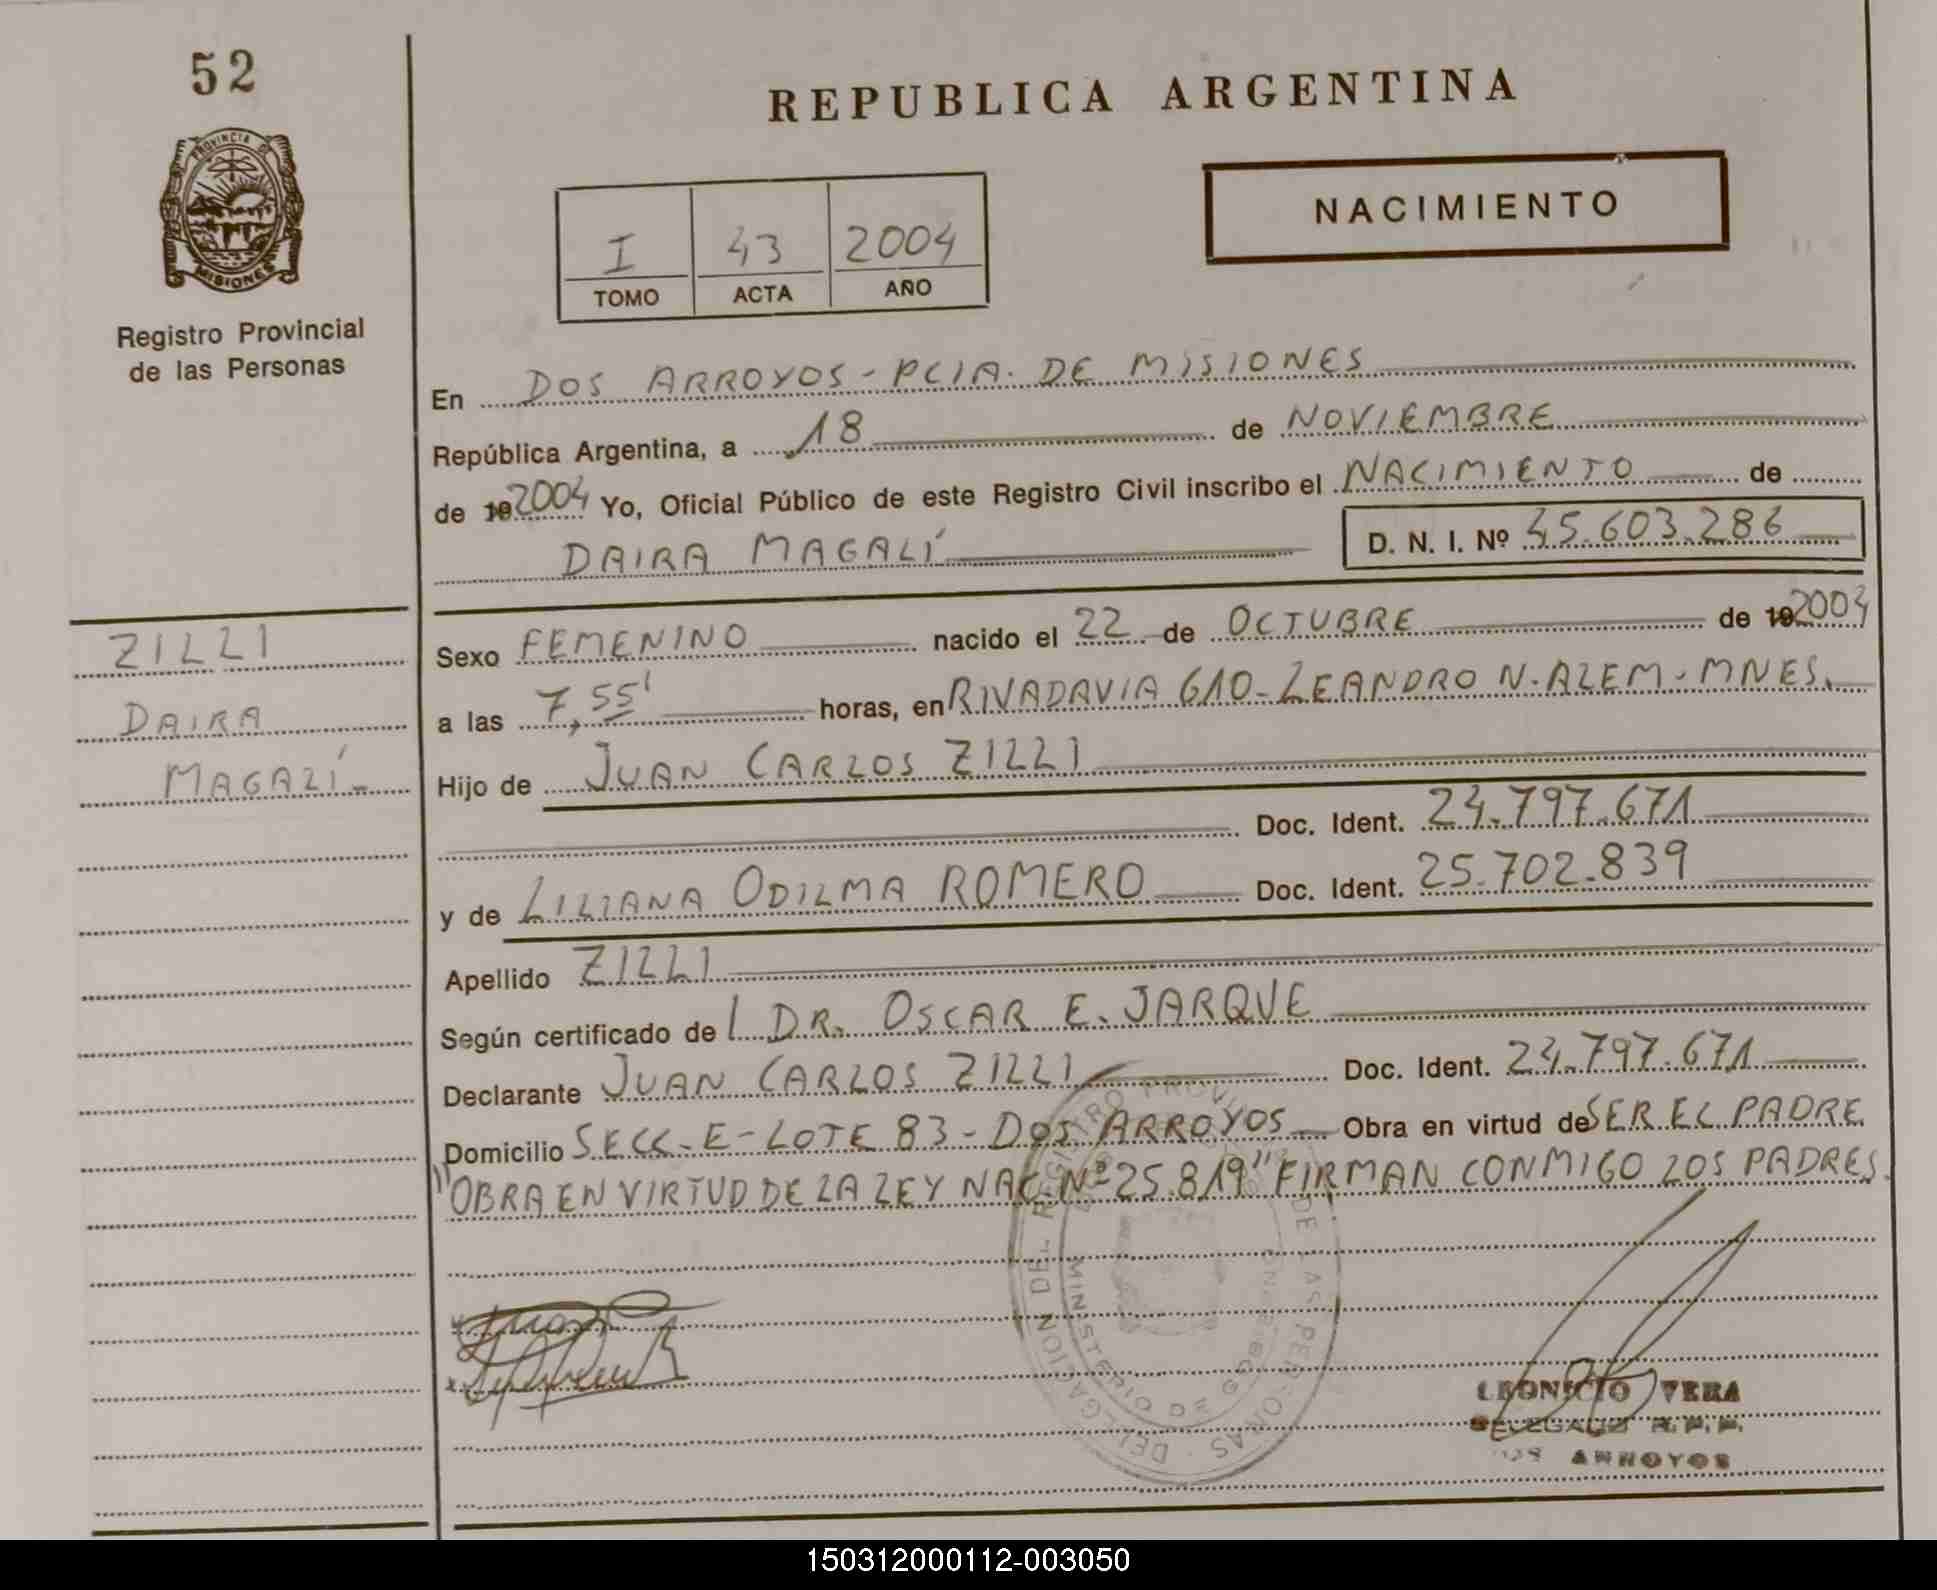 52
REPUBLICA ARGENTINA
PROVINCIA DE
MISIONES
Registro Provincial
de las Personas
NACIMIENTO
I 43 2004
TOMO ACTA AÑO
En DOS ARROYOS - PCIA. DE MISIONES
República Argentina, a 18 de NOVIEMBRE
de 192004 Yo, Oficial Público de este Registro Civil inscribo el NACIMIENTO de
DAIRA MAGALÍ D. N. I. Nº 45.603.286
ZILLI
DAIRA
MAGALÍ
Sexo FEMENINO nacido el 22 de OCTUBRE de 192004
a las 7,55' horas, en RIVADAVIA 610 - LEANDRO N. ALEM - MNES.
Hijo de JUAN CARLOS ZILLI
Doc. Ident. 24.797.671
y de LILIANA ODILMA ROMERO Doc. Ident. 25.702.839
Apellido ZILLI
Según certificado de DR. OSCAR E. JARQUE
Declarante JUAN CARLOS ZILLI Doc. Ident. 24.797.671
Domicilio SECC - E - LOTE 83 - DOS ARROYOS Obra en virtud de SER EL PADRE
"OBRA EN VIRTUD DE LA LEY NAC. Nº 25.819" FIRMAN CONMIGO LOS PADRES.
REGISTRO PROVINCIAL DE LAS PERSONAS - DELEGACION DE
MINISTERIO DE GOBIERNO
LEONICIO VERA
DELEGADO R. P. P.
DOS ARROYOS
150312000112-003050